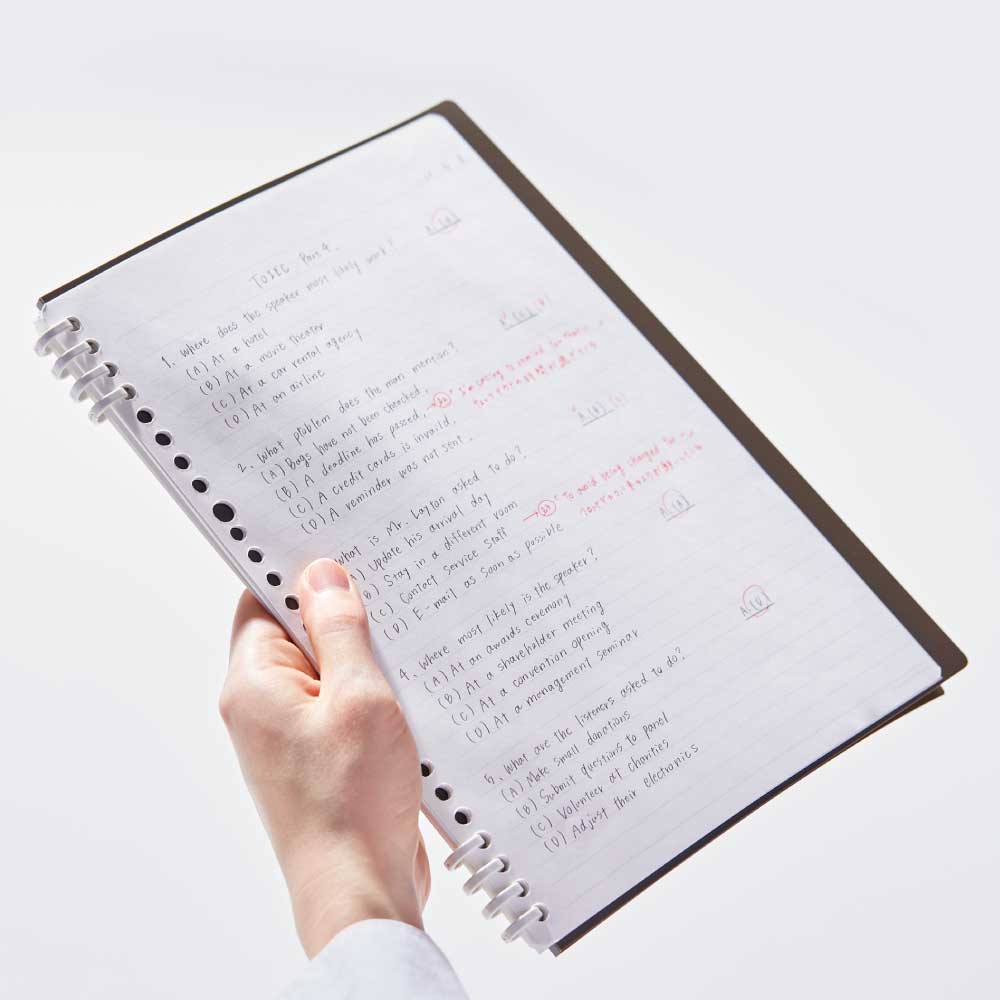 TOEIC Part 4.
1. Where does the speaker most likely work?
(A) At a hotel
(B) At a movie theater
(C) At a car rental agency
(D) At an airline
2. What problem does the man mention?
(A) Bags have not been checked.
(B) A deadline has passed.
(C) A credit cards is invaild.
(D) A reminder was not sent.
What is Mr. Layton asked to do?
) Update his arrival day
B) Stay in a different room
(C) Contact Service Staff
(D) E-mail as soon as possible
To avoid being changed for
4. Where most likely is the speaker?
(A) At an awards ceremony
(B) At a shareholder meeting
(C) At a convention opening
(D) At a management seminar
A. (D)
5. What are the listeners asked to do?
(A) Make small donations
(B) Submit questions to panel
(C) Volunteer at charities
(D) Adjust their electronics